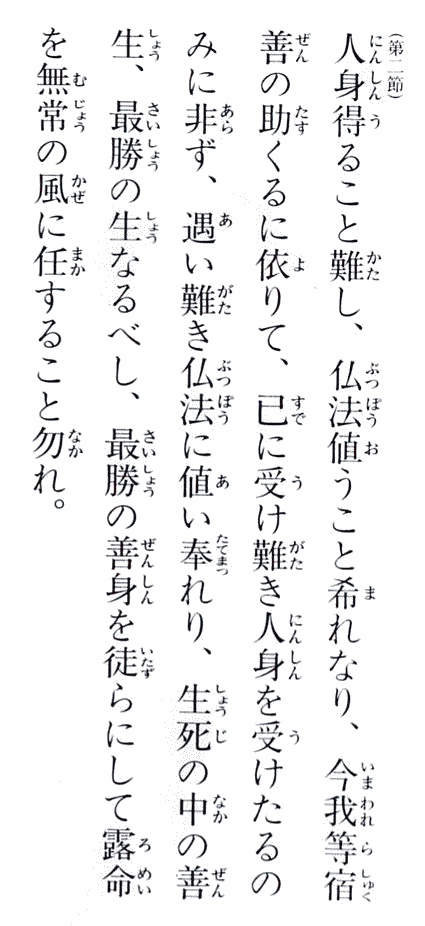 （第二節）
人身得ること難し、仏法値うこと希れなり、今我等宿
善の助くるに依りて、已に受け難き人身を受けたるの
みに非ず、遇い難き仏法に値い奉れり、生死の中の善
生、最勝の生なるべし、最勝の善身を徒らにして露命
を無常の風に任すること勿れ。